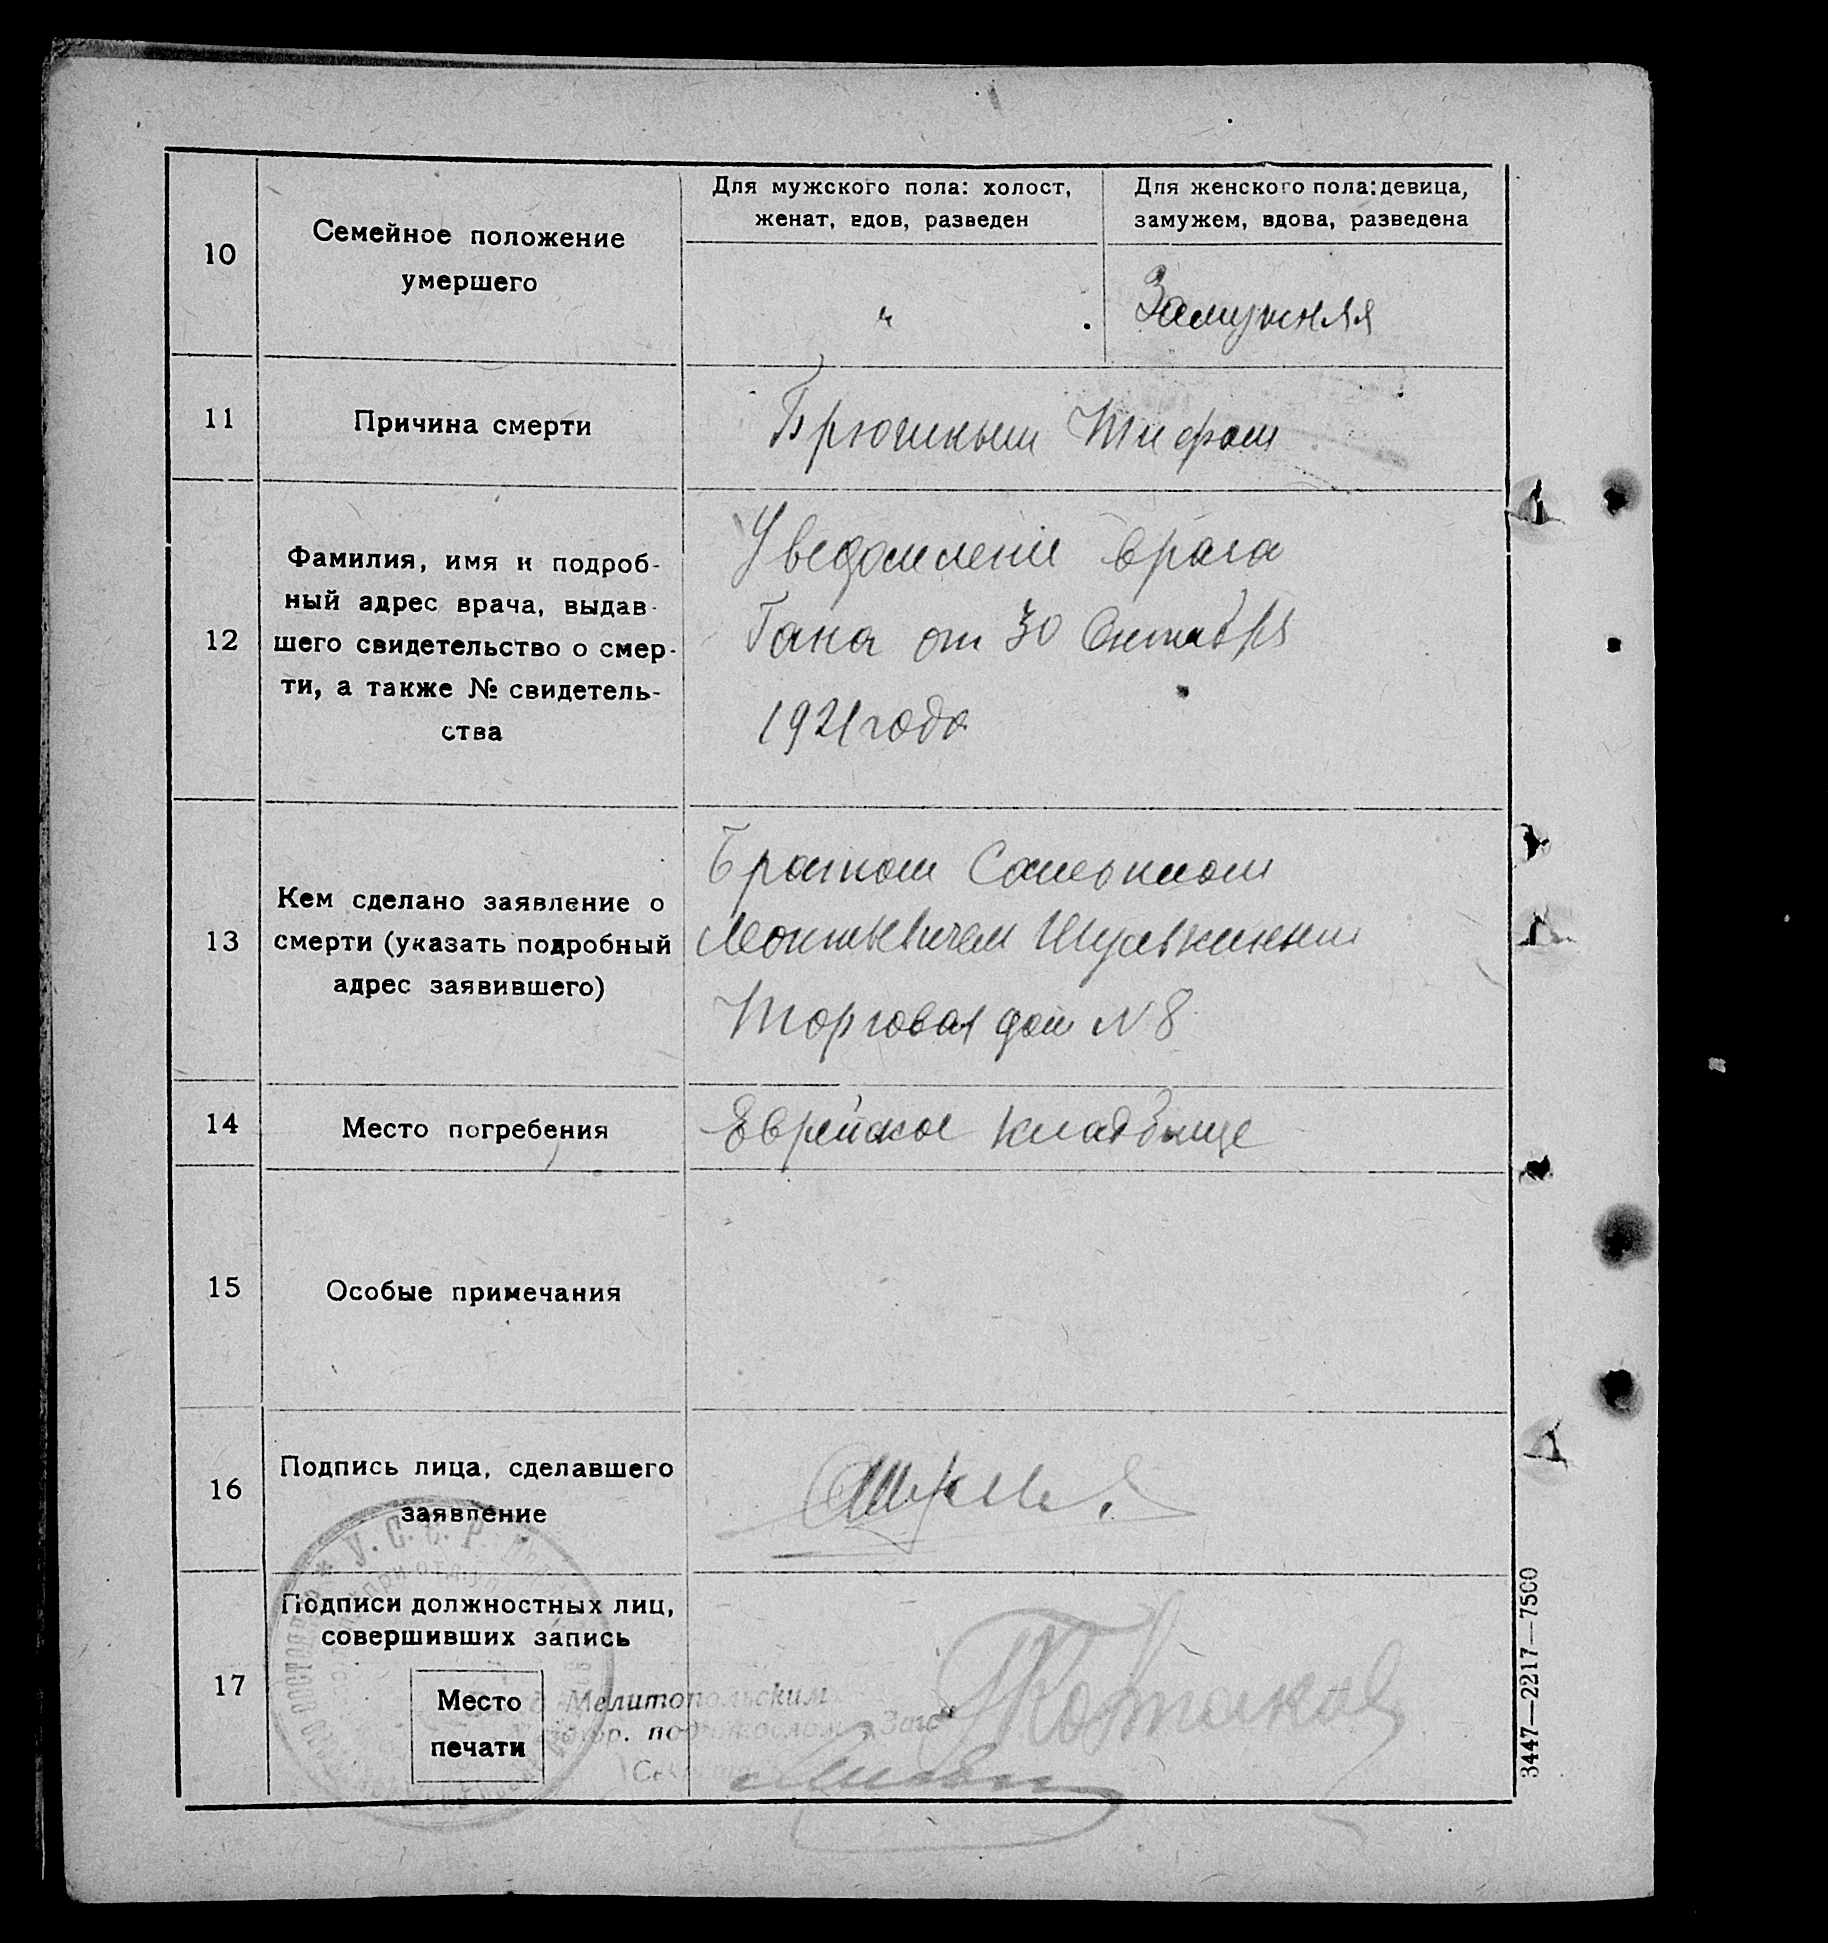 10
Семейное положение
умершего
Для мужского пола: холост,
женат, вдов, разведен
Для женского пола: девица,
замужем, вдова, разведена
"
Замужняя
11
Причина смерти
Брюшным Тифом
12
Фамилия, имя и подроб-
ный адрес врача, выдав-
шего свидетельство о смер-
ти, а также № свидетель-
ства
Уведомление врача
Гана от 30 Октября
1921 года
13
Кем сделано заявление о
смерти (указать подробный
адрес заявившего)
Братом
Торговая дом N 8
14
Место погребения
Еврейское кладбище
15
Особые примечания
16
Подпись лица, сделавшего
заявление
17
Подписи должностных лиц,
совершивших запись
Место
печати
У. С. С. Р.
Мелитопольским
3447—2217—7500